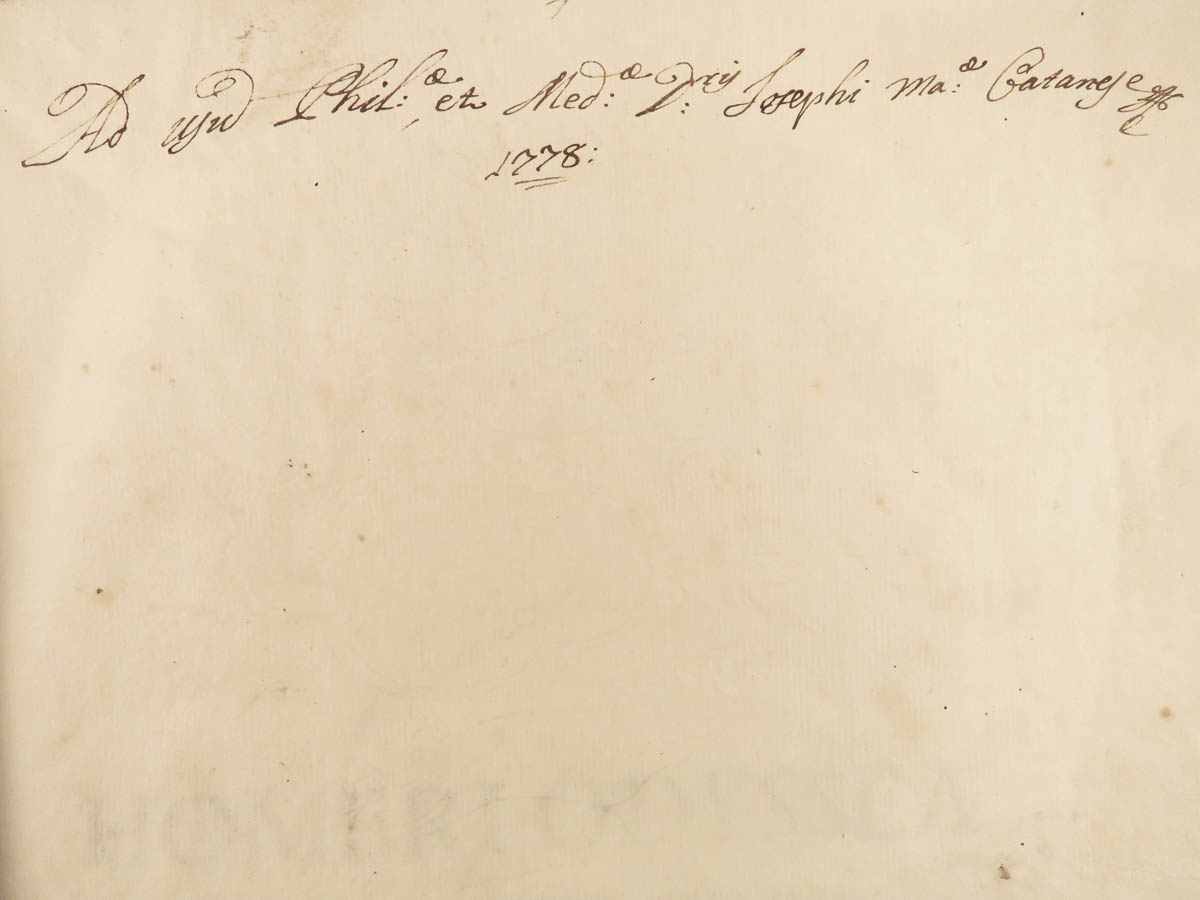 Ad usū Phil:æ et Med:æ D:ris Josephi Ma:æ Catanese
1778: